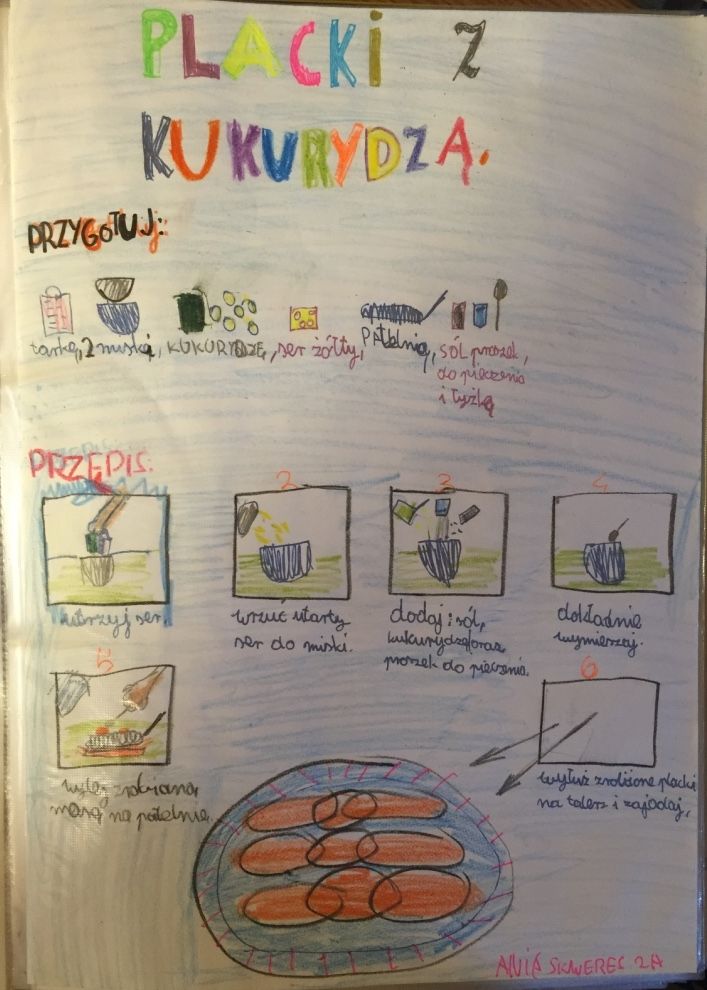 PLACKI Z
KUKURYDZĄ.
PRZYGOTUJ:
tarkę, 2 miski, KUKURYDZĘ, ser żółty, PATELNIĄ, SÓL proszek,
do pieczenia
i łyżkę
PRZEPIS:
2 3 4
utrzyj ser.
wrzuć utarty
ser do miski.
dodaj: sól,
kukurydzę oraz
proszek do pieczenia.
dokładnie
wymierzaj.
5
wylej zrobioną
masę na patelnię.
6
wyłuż zrobione placki
na talerz i zajadaj,
ANIA SKWEREC 2A